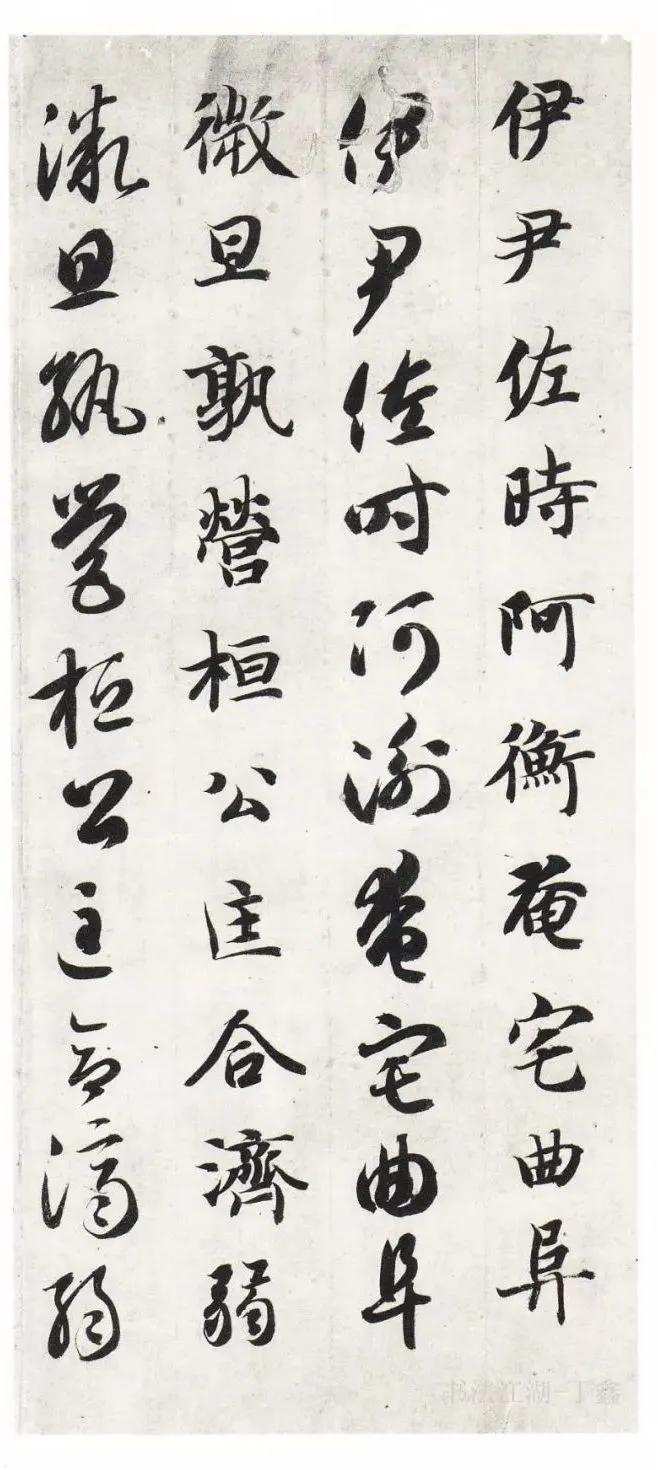 伊尹佐時阿衡奄宅曲阜
伊尹佐时阿衡奄宅曲阜
微旦孰營桓公匡合濟弱
微旦孰營桓公匡合濟弱
书法江湖-丁鑫